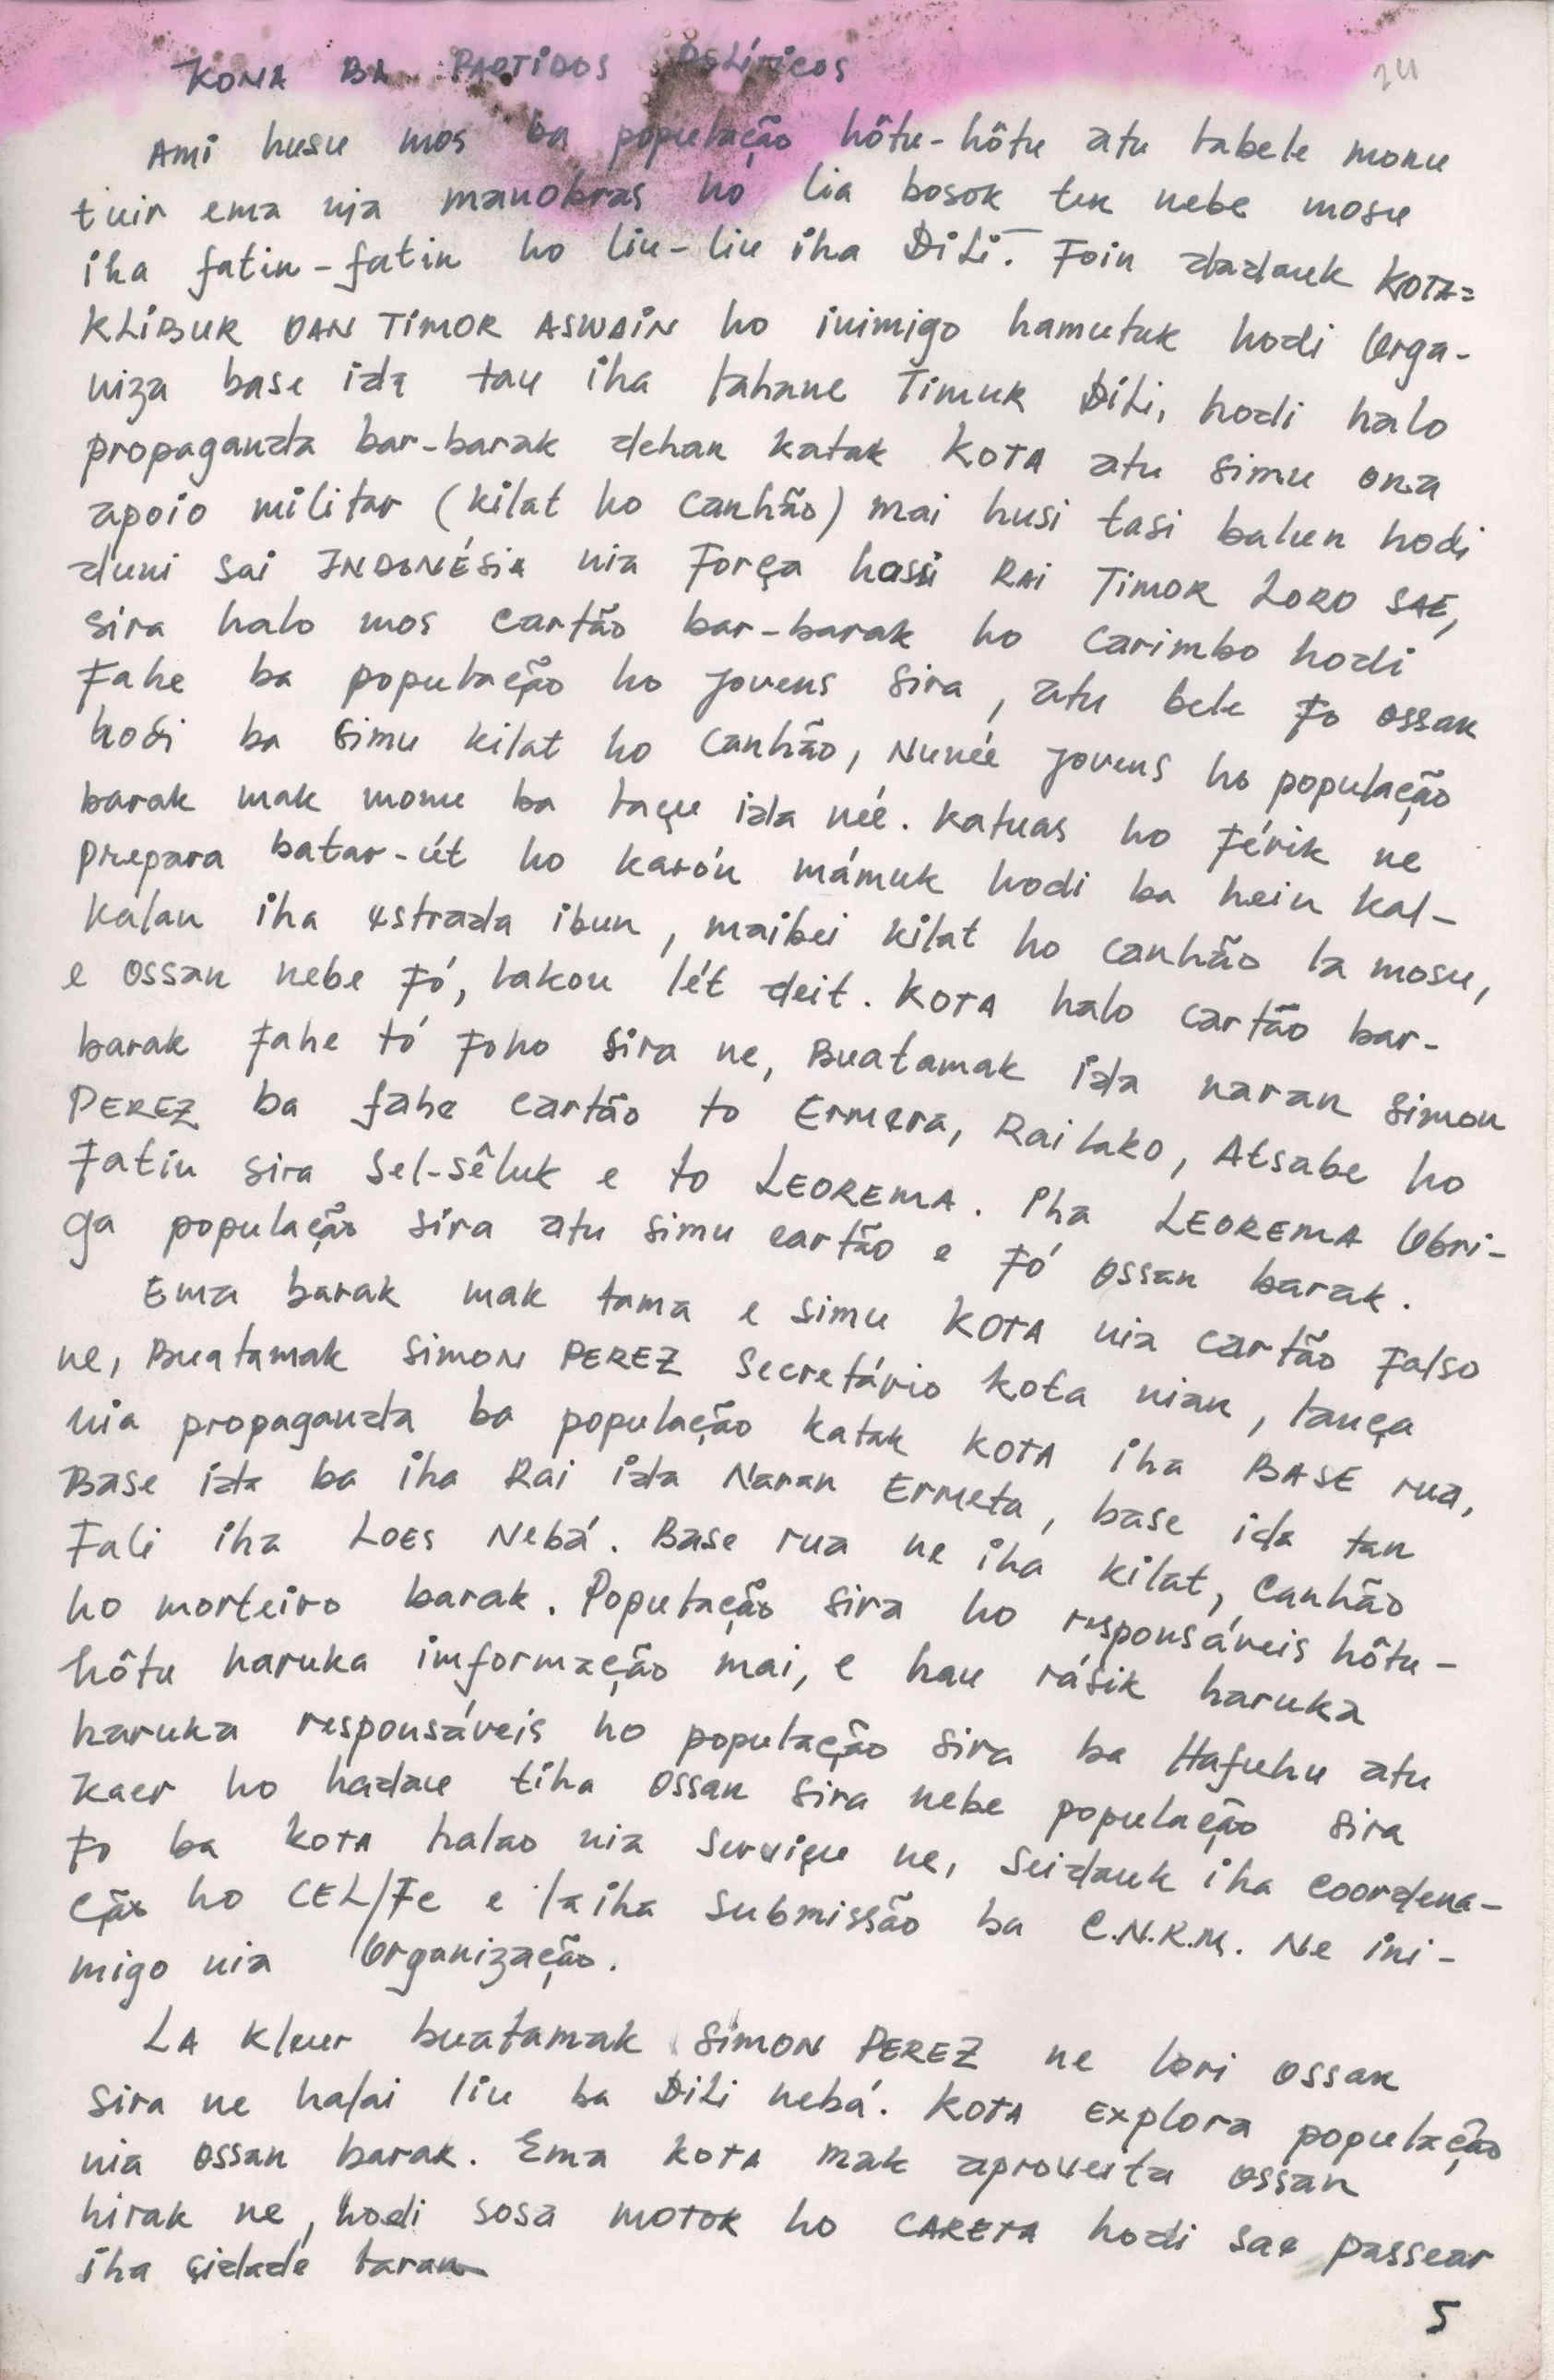 KONA BA PARTIDOS POLÍTICOS
24
Ami husu mos ba população hôtu-hôtu atu labele monu
tuir ema nia manobras ho lia bosok tun nebe mosu
iha fatin-fatin ho liu-liu iha DiLi. Foin dadauk KOTA=
KLIBUR OAN TIMOR ASWAIN ho inimigo hamutuk hodi Orga-
niza base ida tau iha lahane Timur DiLi, hodi halo
propaganda bar-barak dehan katak KOTA atu simu ona
apoio militar (kilat ho canhão) mai husi tasi balun hodi
duni sai INDONÉSIA nia Força hosi RAI TIMOR LORO SAE,
sira halo mos cartão bar-barak ho carimbo hodi
Fahe ba população ho jovens sira, atu bele Fo ossan
hodi ba simu kilat ho canhão, Nuneé jovens ho população
barak mak monu ba laçu ida neé. Katuas ho Férik ne
prepara batar-út ho karón mámuk hodi ba hein kal-
kalan iha estrada ibun, maibei kilat ho canhão la mosu,
e ossan nebe Fó, lakon lét deit. KOTA halo cartão bar-
barak Fahe tó Foho sira ne, Buatamak ida naran Simon
PEREZ ba fahe cartão to Ermera, Railako, Atsabe ho
Fatin sira Sel-sêluk e to LEOREMA. Iha LEOREMA Obri-
ga população sira atu simu cartão e Fó ossan barak.
Ema barak mak tama e simu KOTA nia cartão Falso
ne, Buatamak SIMON PEREZ Secretário Kota nian, lança
nia propaganda ba população katak KOTA iha BASE rua,
Base ida ba iha Rai ida Naran Ermeta, base ida tan
Fali iha LOES Nebá. Base rua ne iha kilat, Canhão
ho morteiro barak. População sira ho responsáveis hôtu-
hôtu haruka imformação mai, e hau rásik haruka
haruka responsáveis ho população sira ba Hafuhu atu
Kaer ho hadau tiha ossan sira nebe população sira
Fo ba KOTA halao nia serviçu ne, Seidauk iha coordena-
ção ho CEL/Fe e laiha submissão ba C.N.R.M. Ne ini-
migo nia Organização.
LA kleur buatamak SIMON PEREZ ne lori ossan
sira ne halai liu ba DiLi nebá. KOTA explora população
nia ossan barak. Ema KOTA mak aproveita ossan
hirak ne, hodi sosa MOTOR ho CARETA hodi sae passear
iha çidade laran
5